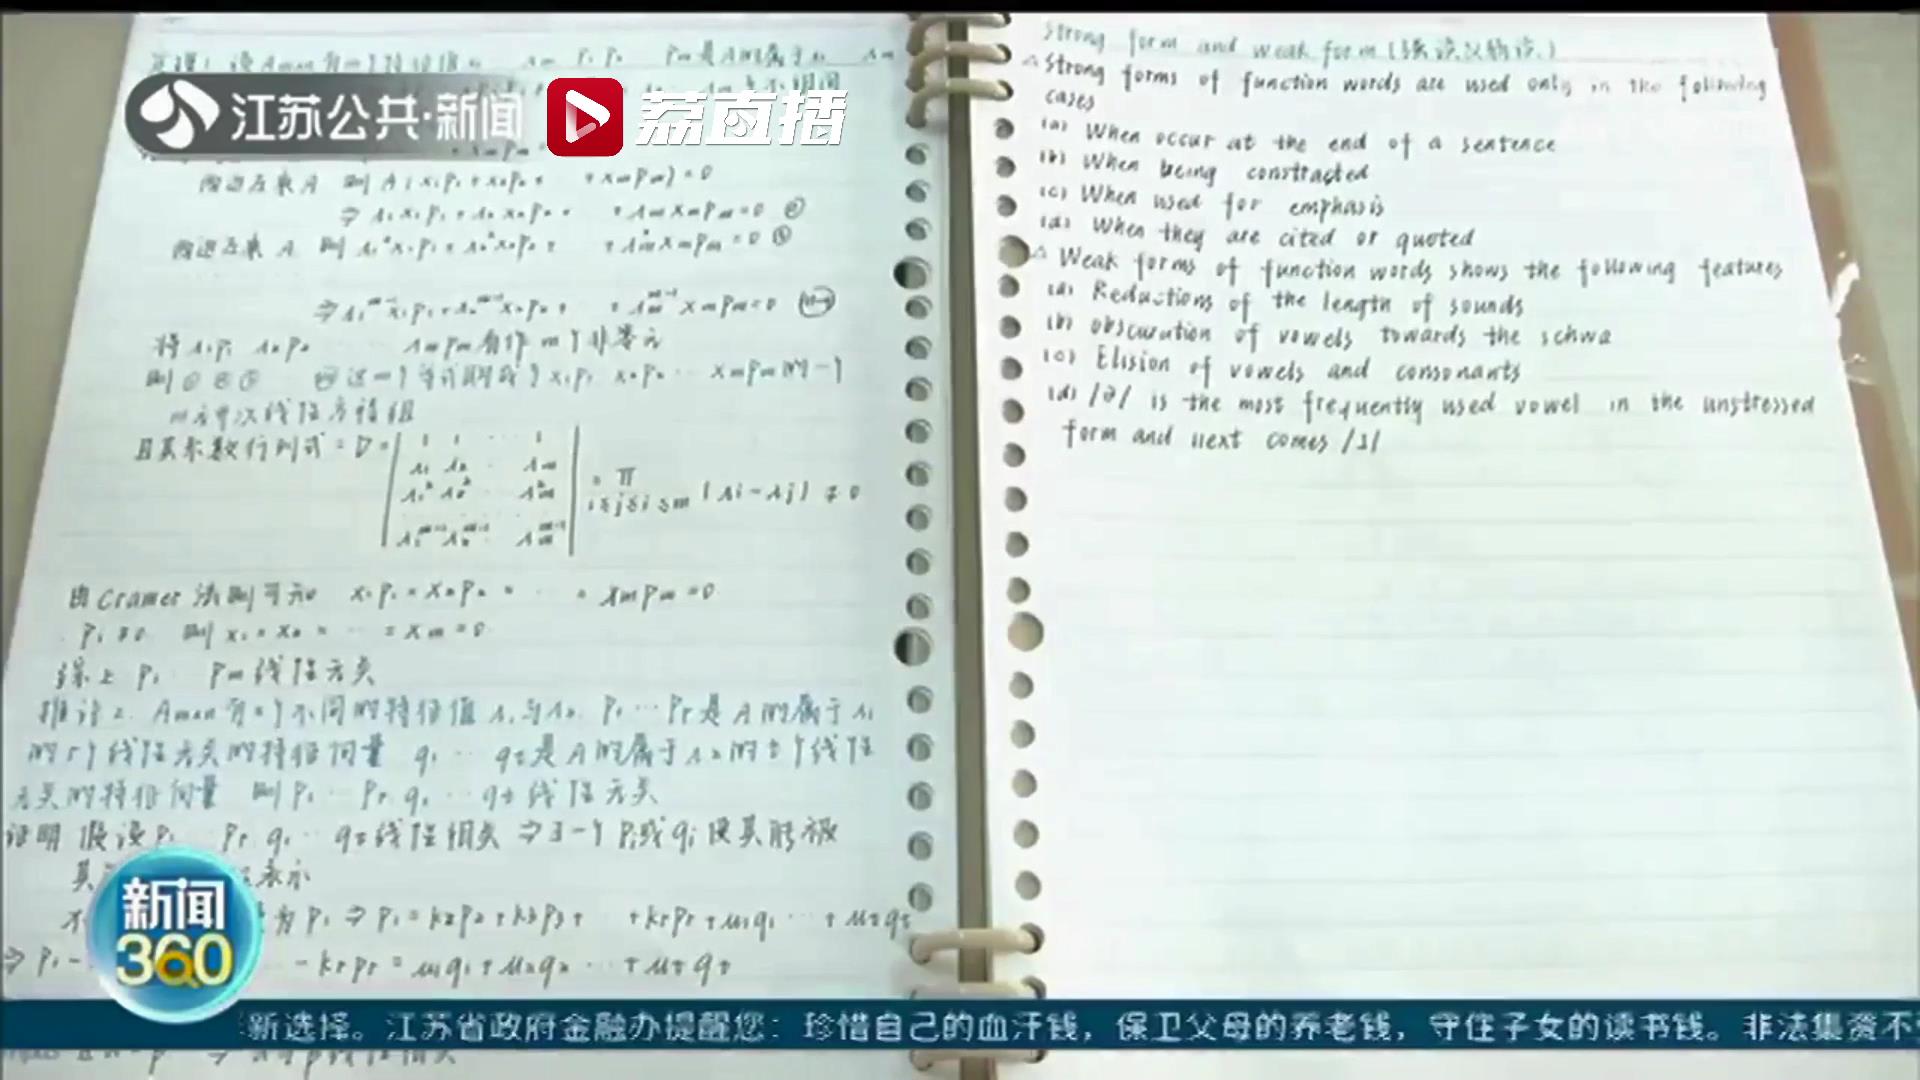 江苏公共·新闻
荔直播
两边左乘A 则 A(x₁p₁+x₂p₂+ +xmpm)=0
⇒ λ₁x₁p₁+λ₂x₂p₂+ +λmxmpm=0 ②
两边左乘 A 则 λ₁²x₁p₁+λ₂²x₂p₂+ +λm²xmpm=0 ③
⇒λ₁ᵐ⁻¹x₁p₁+λ₂ᵐ⁻¹x₂p₂+ +λmᵐ⁻¹xmpm=0
将 λ₁p₁ λ₂p₂ λmpm看作m个非零元
m元齐次线性方程组
且其系数行列式=D=
1 1 ... 1
λ₁ λ₂ ... λm
λ₁² λ₂² ... λm²
λ₁ᵐ⁻¹ λ₂ᵐ⁻¹ ... λmᵐ⁻¹
=Π
1≤j≤i≤m (λi-λj) ≠ 0
由Cramer法则可知 x₁p₁=x₂p₂= ... = xmpm=0
p₁≠0 则 x₁=x₂= ... =xm=0
综上 p₁ ... pm线性无关
推论2. Am×n有2个不同的特征值λ₁与λ₂. p₁...pr是A的属于λ₁
的r个线性无关的特征向量 q₁...qt是A的属于λ₂的t个线性
无关的特征向量 则p₁...pr q₁...qt线性无关
证明 假设p₁ ... pr q₁ ... qt线性相关⇒∃一个pi或qi使其能被
表示
为p₁⇒p₁=k₂p₂+k₃p₃+ +krpr+u₁q₁...+utqt
⇒p₁- -krpr=u₁q₁+u₂q₂...+utqt
线性相关
Strong form and weak form (强读及弱读.)
△Strong forms of function words are used only in the following
cases
(a) When occur at the end of a sentence
(b) When being constracted
(c) When used for emphasis
(d) When they are cited or quoted
△ Weak forms of function words shows the following features
(a) Reductions of the length of sounds
(b) obscuration of vowels towards the schwa
(c) Elision of vowels and consonants
(d) /ə/ is the most frequently used vowel in the unstressed
form and next comes /ɪ/
新闻
360
新选择。江苏省政府金融办提醒您：珍惜自己的血汗钱，保卫父母的养老钱，守住子女的读书钱。非法集资不